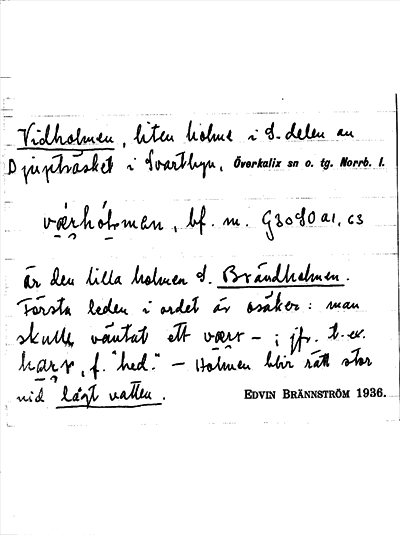 Vidholmen, liten holme i S. delen av
Djupträsket i Svartbyn. Överkalix sn o. tg. Norrb. l.
bf. m. G3080a1, c3
är den lilla holmen S. Brändholmen.
Första leden i ordet är osäker: man
skulle väntat ett værr- ; jfr. t.ex.
harr, f. "hed." – Holmen blir rätt stor
vid lågt vatten. EDVIN BRÄNNSTRÖM 1936.